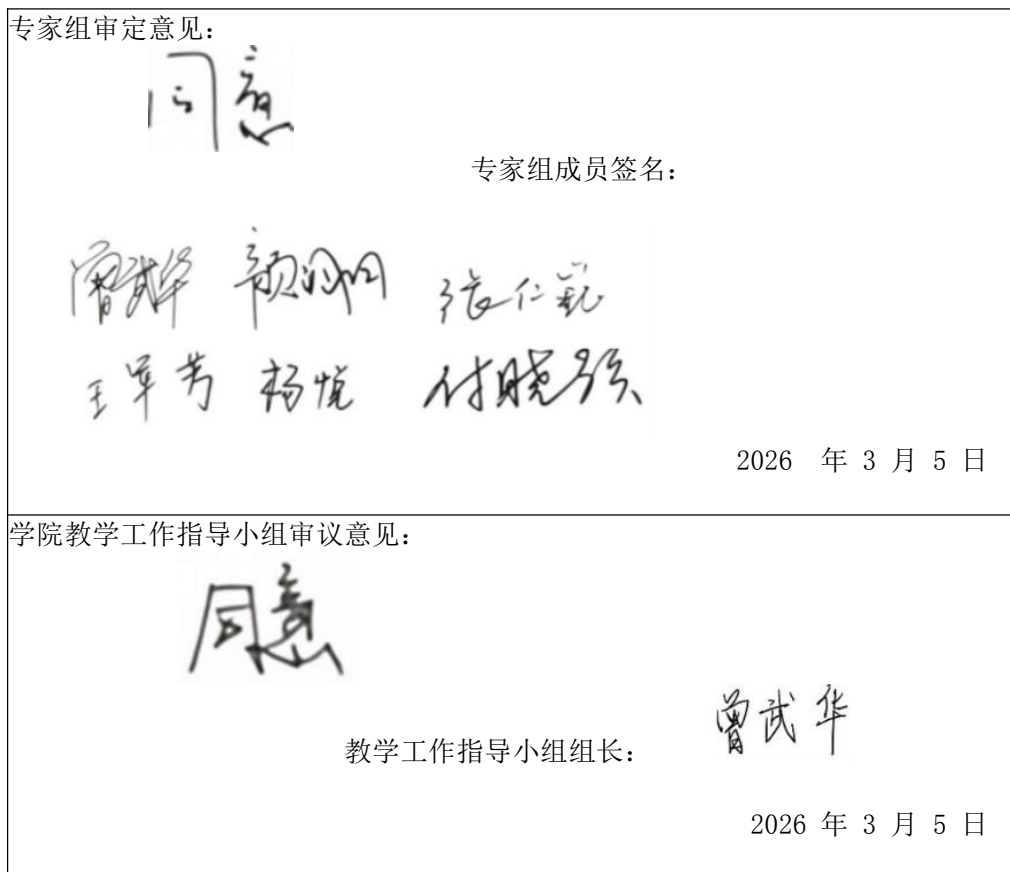 专家组审定意见：
同意
专家组成员签名：
曾武华 颜 张仁
王军芳 杨悦 付晓强
2026 年 3 月 5 日
学院教学工作指导小组审议意见：
同意
曾武华
教学工作指导小组组长：
2026 年 3 月 5 日